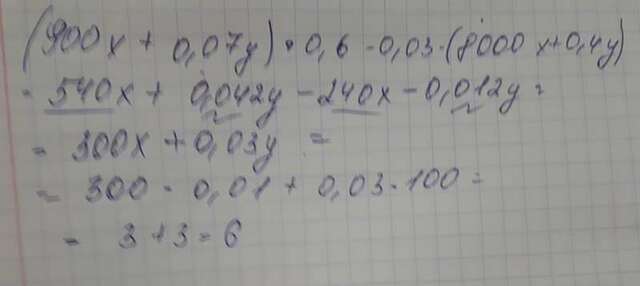 (900x + 0,07y) · 0,6 - 0,03 · (8000x + 0,4y)
= 540x + 0,042y - 240x - 0,012y =
= 300x + 0,03y =
= 300 · 0,01 + 0,03 · 100 =
= 3 + 3 = 6